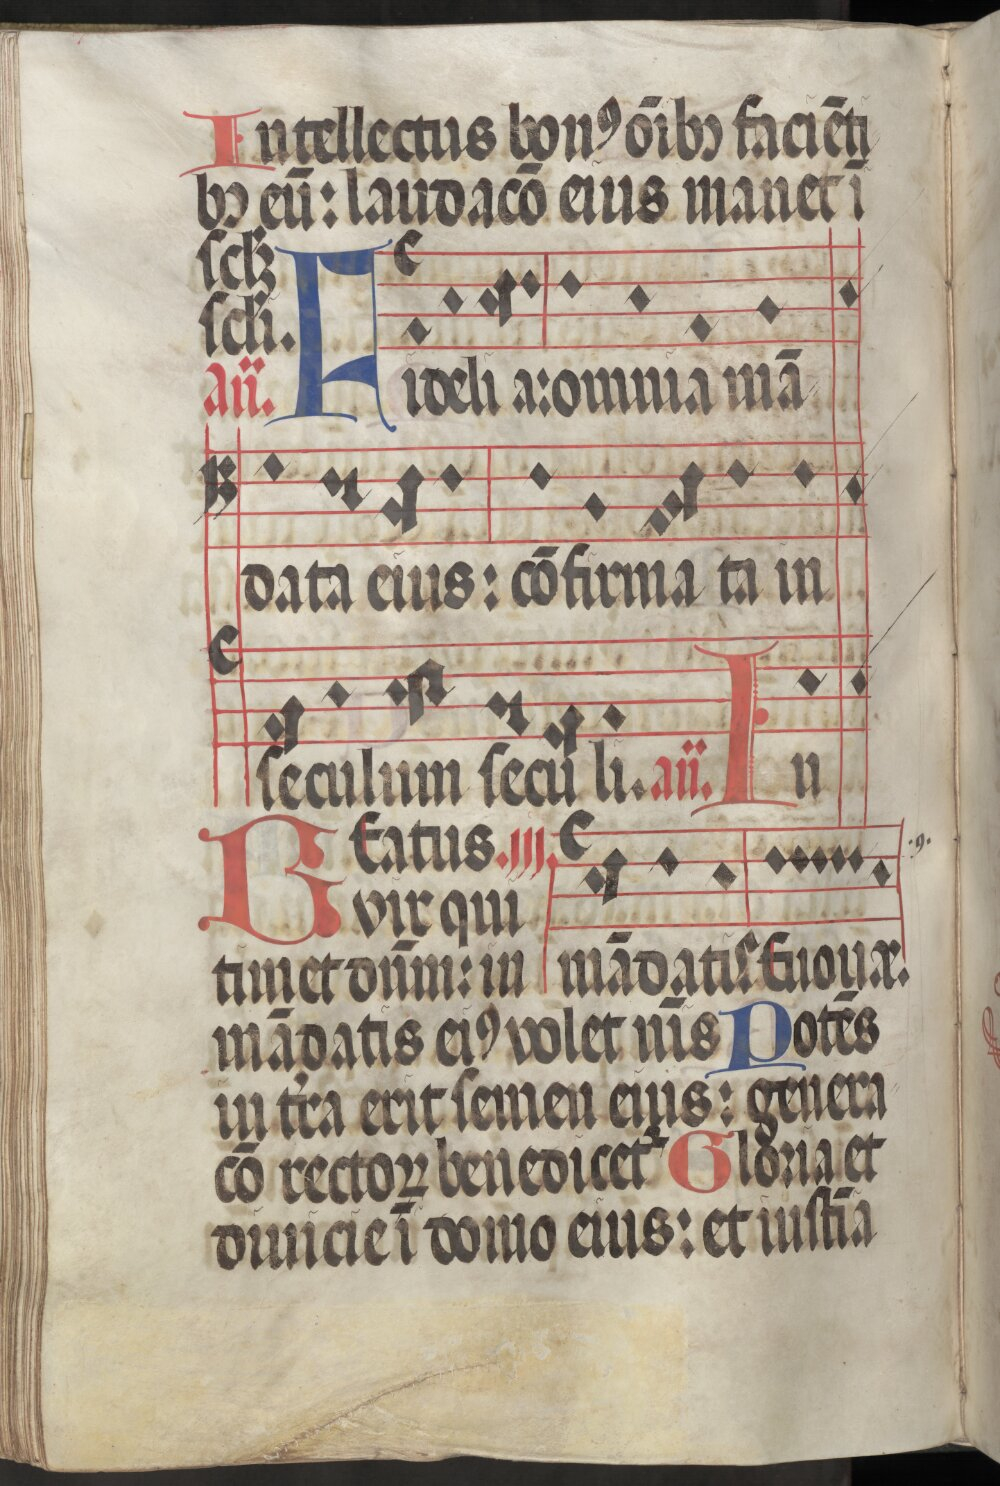 Intellectus bonꝰ oīb᷒ faciēti
b᷒ eū: laudacō eius manet ī
scłȝ
scłi.
añ. Fideli a: omnia mā
data eius: cōfirma ta in
seculum secu li. añ. In
BEatus .iij.
vir qui
timet dūm: in mādatis Euouae. .9.
mādatis eiꝰ volet nīs Potēs
in tra erit semen eius: genera
cō rectoꝝ benedicet᷑ Gloria et
diuicie ī domo eius: et iustīa